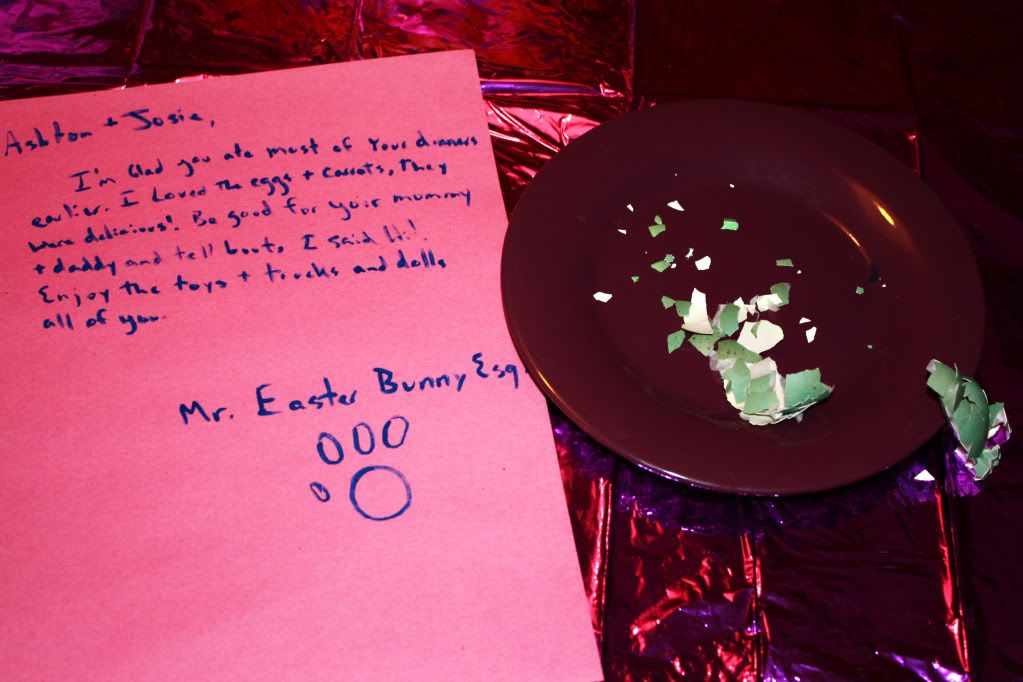 Ashton + Josie,
I'm Glad you ate most of Your dinners
earlier. I Loved the eggs + carrots, They
were delicious! Be good for your mummy
+ daddy and tell boots I said Hi!
Enjoy the toys + trucks and dolls
all of you.
Mr. Easter Bunny Esq.